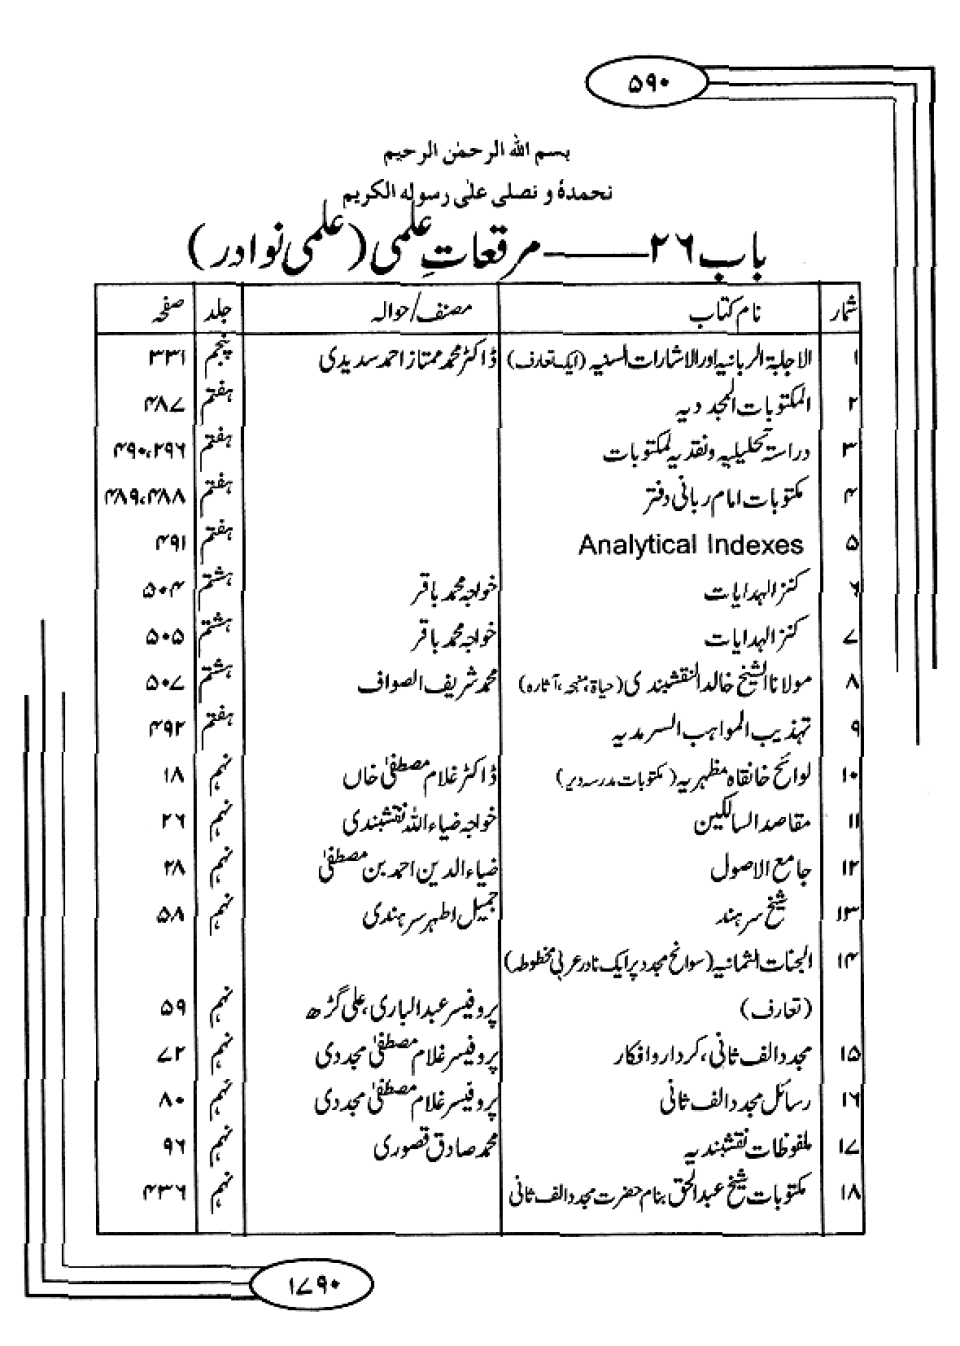 ۵۹۰
بسم الله الرحمٰن الرحیم
نحمدهٗ و نصلی علیٰ رسوله الکریم
باب ۲۶ ــــــ مرقعاتِ علمی (علمی نوادر)
شمار نام کتاب مصنف/حوالہ جلد صفحہ
۱ الاجلبۃ الربانیہ اور الاشارات السنیہ (ایک تعارف) ڈاکٹر محمد ممتاز احمد سدیدی پنجم ۳۳۱
۲ المکتوبات المجددیہ ہفتم ۴۸۷
۳ دراستہ تحلیلیہ ونقدیہ لمکتوبات ہفتم ۴۹۰،۲۹۶
۴ مکتوبات امام ربانی دفتر ہفتم ۴۸۹،۴۸۸
۵ Analytical Indexes ہفتم ۴۹۱
۶ کنز الہدایات خواجہ محمد باقر ہشتم ۵۰۴
۷ کنز الہدایات خواجہ محمد باقر ہشتم ۵۰۵
۸ مولانا الشیخ خالد النقشبندی (حیاۃ، منھجہ، آثارہ) محمد شریف الصواف ہشتم ۵۰۷
۹ تہذیب المواہب السرمدیہ ہفتم ۴۹۲
۱۰ لوائح خانقاہ مظہریہ (مکتوبات مدرسہ دیر) ڈاکٹر غلام مصطفیٰ خاں نہم ۱۸
۱۱ مقاصد السالکین خواجہ ضیاء اللہ نقشبندی نہم ۲۶
۱۲ جامع الاصول ضیاء الدین احمد بن مصطفیٰ نہم ۲۸
۱۳ شیخ سرہند جمیل اطہر سرہندی نہم ۵۸
۱۴ الجنات الثمانیہ (سوانح مجدد پر ایک نادر عربی مخطوطہ)
(تعارف) پروفیسر عبدالباری، علی گڑھ نہم ۵۹
۱۵ مجدد الف ثانی، کردار و افکار پروفیسر غلام مصطفیٰ مجددی نہم ۷۲
۱۶ رسائل مجدد الف ثانی پروفیسر غلام مصطفیٰ مجددی نہم ۸۰
۱۷ ملفوظات نقشبندیہ محمد صادق قصوری نہم ۹۶
۱۸ مکتوبات شیخ عبدالحق بنام حضرت مجدد الف ثانی نہم ۴۳۶
۱۷۹۰